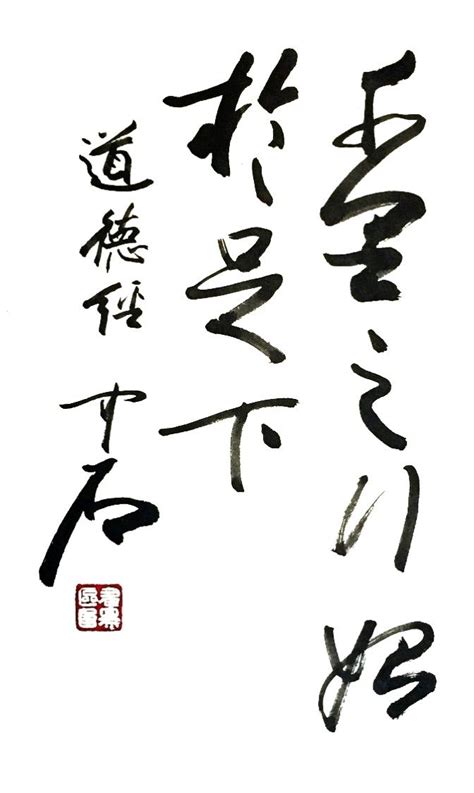 千里之行始
於足下
道德经 中石